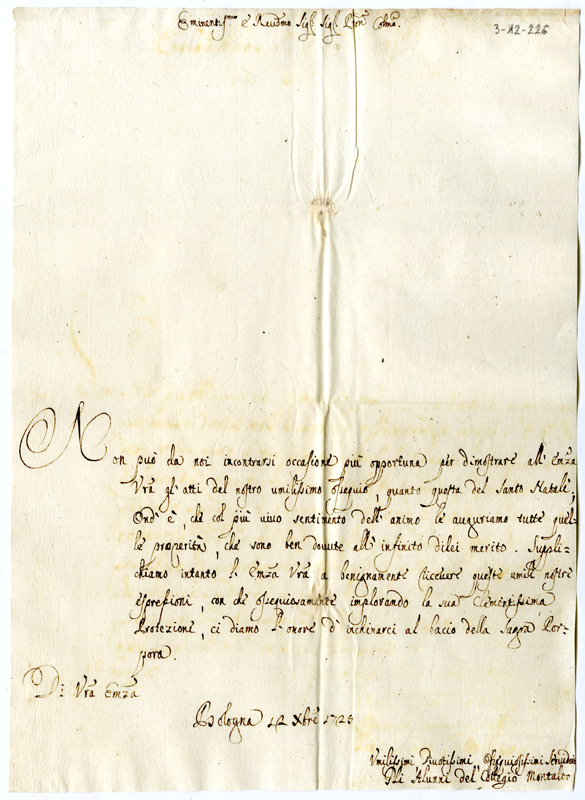 Eminentis.mo e Reu.mo Sig.r Sig.r Pron Colmo.
3-12-226
Non può da noi incontrarsi occasione più opportuna per dimostrare all' Emza
Vra gl' atti del nostro umilissimo ossequio, quanto questa del Santo Natale;
Ond' è, che col più vivo sentimento dell' animo le auguriamo tutte quel-
le prosperità, che sono ben dovute all' infinito dilei merito. Suppli-
chiamo intanto l' Emza Vra a benignamente riceuere queste umili nostre
espressioni, con che ossequiosamente implorando la sua Clementissima
Protezione, ci diamo l' onore d' inchinarci al bacio della Sagra Por-
pora.
Di Vra Emza
Bologna 12 Xbre 1725
Vmilissimi Diuotissimi Ossequiosissimi Seruidori
Gli Alunni del Collegio Montalto